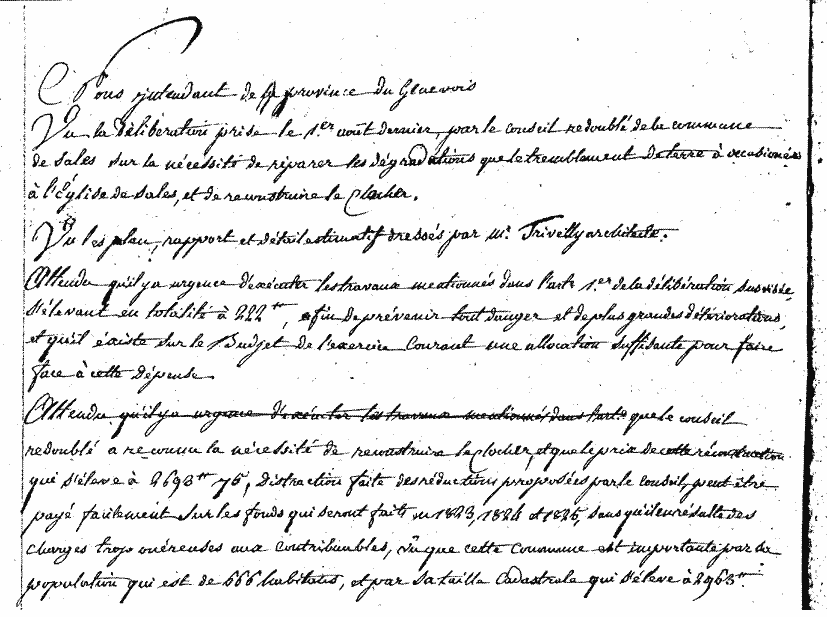 Nous Intendant de la province du Genevois
Vu la délibération prise le 1.er août dernier, par le conseil redoublé de la commune
de Sales sur la nécessité de réparer les dégradations que le tremblement de terre à occasionées
à l'Église de Sales, et de reconstruire le Clocher.
Vu les plan, rapport et détail estimatif dressés par Mr. Trivelly architecte.
Attendu qu'il y a urgence d'exécuter les travaux mentionnés dans l'art. 1.er de la délibération susvisée,
s'élevant en totalité à 222 tt, afin de prévenir tout danger et de plus grandes détériorations,
et qu'il existe sur le Budget de l'exercice courant une allocation suffisante pour faire
face à cette dépense.
Attendu qu'il y a urgence d'exécuter les travaux mentionnés dans l'art. que le conseil
redoublé a reconnu la nécessité de reconstruire le clocher, et que le prix de cette réconstruction
qui s'élève à 2693 tt 75, distraction faite des réductions proposées par le conseil, peut être
payé facilement sur les fonds qui seront faits en 1823, 1824 et 1825, sans qu'il en résulte des
charges trop onéreuses aux contribuables, vû que cette commune est importante par sa
population qui est de 666 habitans, et par sa taille cadastrale qui s'élève à 2963 tt.